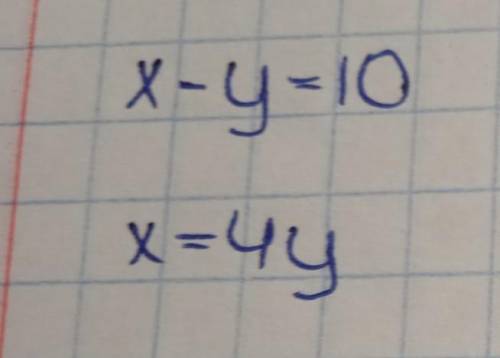 x - y = 10
x = 4y